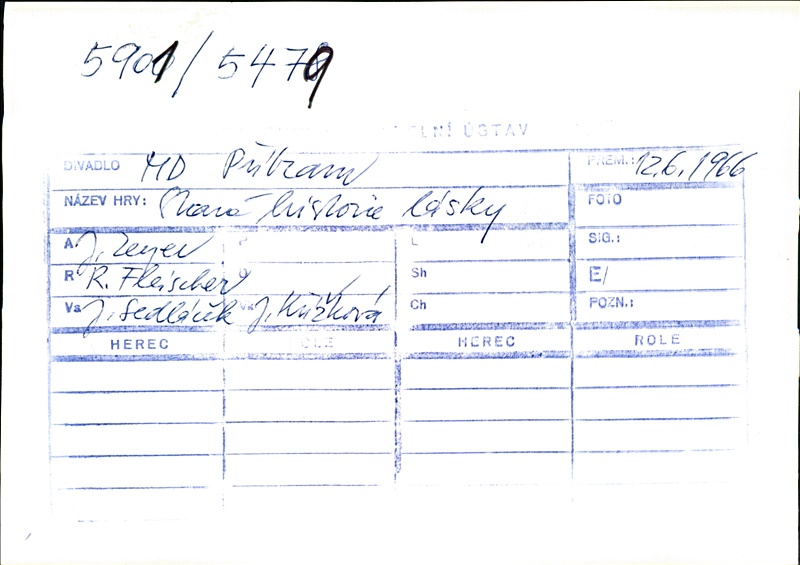 5901/5479
ELNÍ ÚSTAV
DIVADLO MD Příbram PREM.: 12.6.1966
NÁZEV HRY: Stará historie lásky FOTO
A J. Zeyer P L SIG.:
R R. Fleischer Sh E/
Vs J. Sedláček J. Křížková Ch POZN.:
HEREC ROLE HEREC ROLE